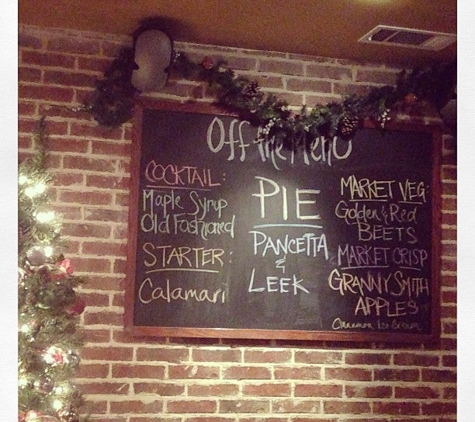 Off the Menu
COCKTAIL:
Maple Syrup
Old Fashioned
STARTER:
Calamari
PIE
PANCETTA
&
LEEK
MARKET VEG
Golden & Red
BEETS
MARKET CRISP
GRANNY SMITH
APPLES
Cinnamon Ice Cream